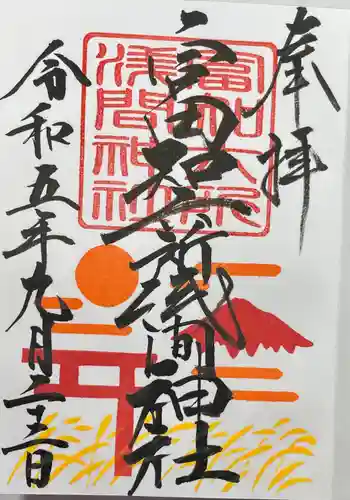 奉拝
富知六所浅間神社
富知六所
浅間神社
令和五年九月二十三日